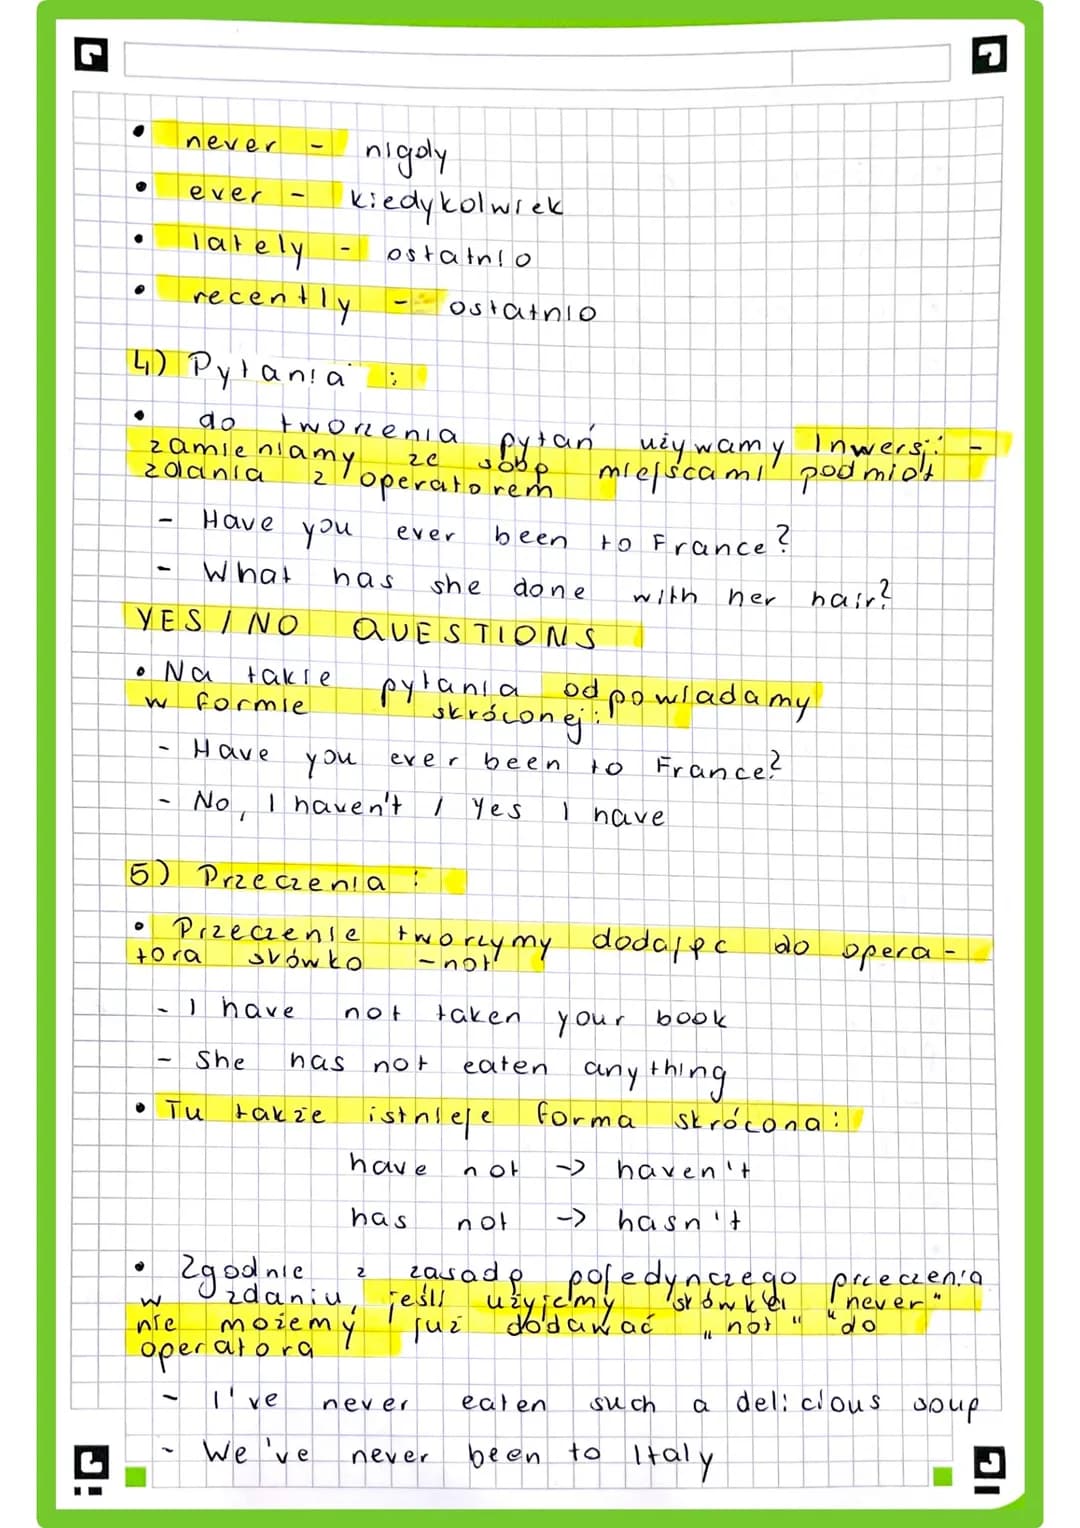 • never - nigdy
• ever - kiedykolwiek
• lately - ostatnio
• recently - ostatnio
4) Pytania :
• do tworzenia pytań używamy Inwersji -
zamieniamy ze sobą miejscami podmiot
zdania z operatorem
- Have you ever been to France?
- What has she done with her hair?
YES / NO QUESTIONS
• Na takie pytania odpowiadamy
w formie skróconej:
- Have you ever been to France?
- No, I haven't / Yes I have
5) Przeczenia :
• Przeczenie tworzymy dodając do opera-
tora słówko -not
- I have not taken your book
- She has not eaten anything
• Tu także istnieje forma skrócona:
have not -> haven't
has not -> hasn't
• Zgodnie z zasadą pojedynczego przeczenia
w zdaniu, jeśli użyjemy słówka "never"
nie możemy już dodawać "not" do
operatora
- I've never eaten such a delicious soup
- We've never been to Italy